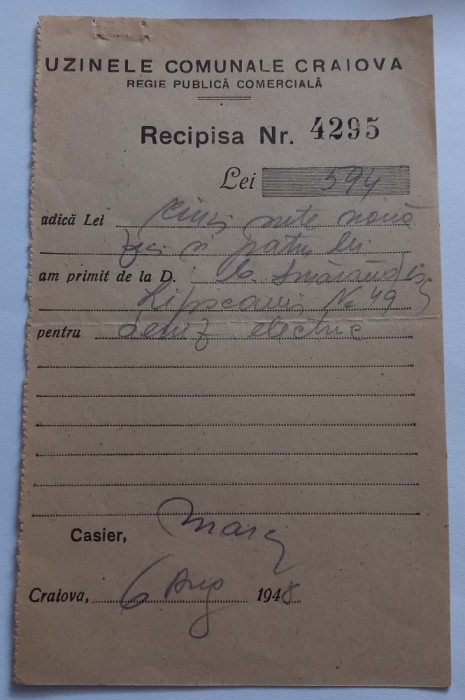 UZINELE COMUNALE CRAIOVA
REGIE PUBLICĂ COMERCIALĂ
Recipisa Nr. 4295
Lei 594
adică Lei cinci sute nouă
zeci și patru lei
am primit de la D.
Lipscani No 49
pentru deviz electric
Casier,
Craiova, 6 Aug 1948